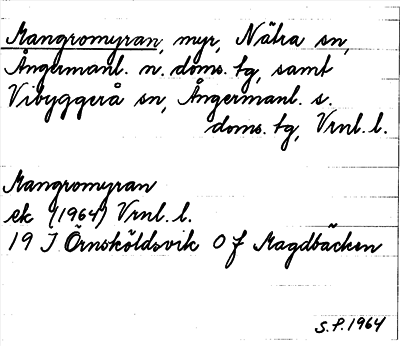 Mangromyran, myr, Nätra sn,
Ångermanl. n. doms. tg, samt
Vibyggerå sn, Ångermanl. s.
doms. tg, Vrnl. l.
Mangromyran
ek (1964) Vrnl. l.
19 J Örnsköldsvik 0 f Magdbäcken
S.P. 1964